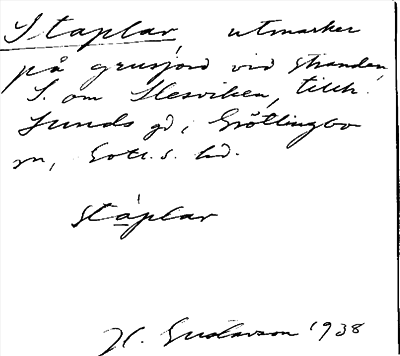 Staplar, utmarker
på grusjord vid stranden,
S. om Hesviken, tillh.
Sunds gd, Gröttlingbo
sn, Gotl. s. hd.
staplar
H. Gustavson 1938